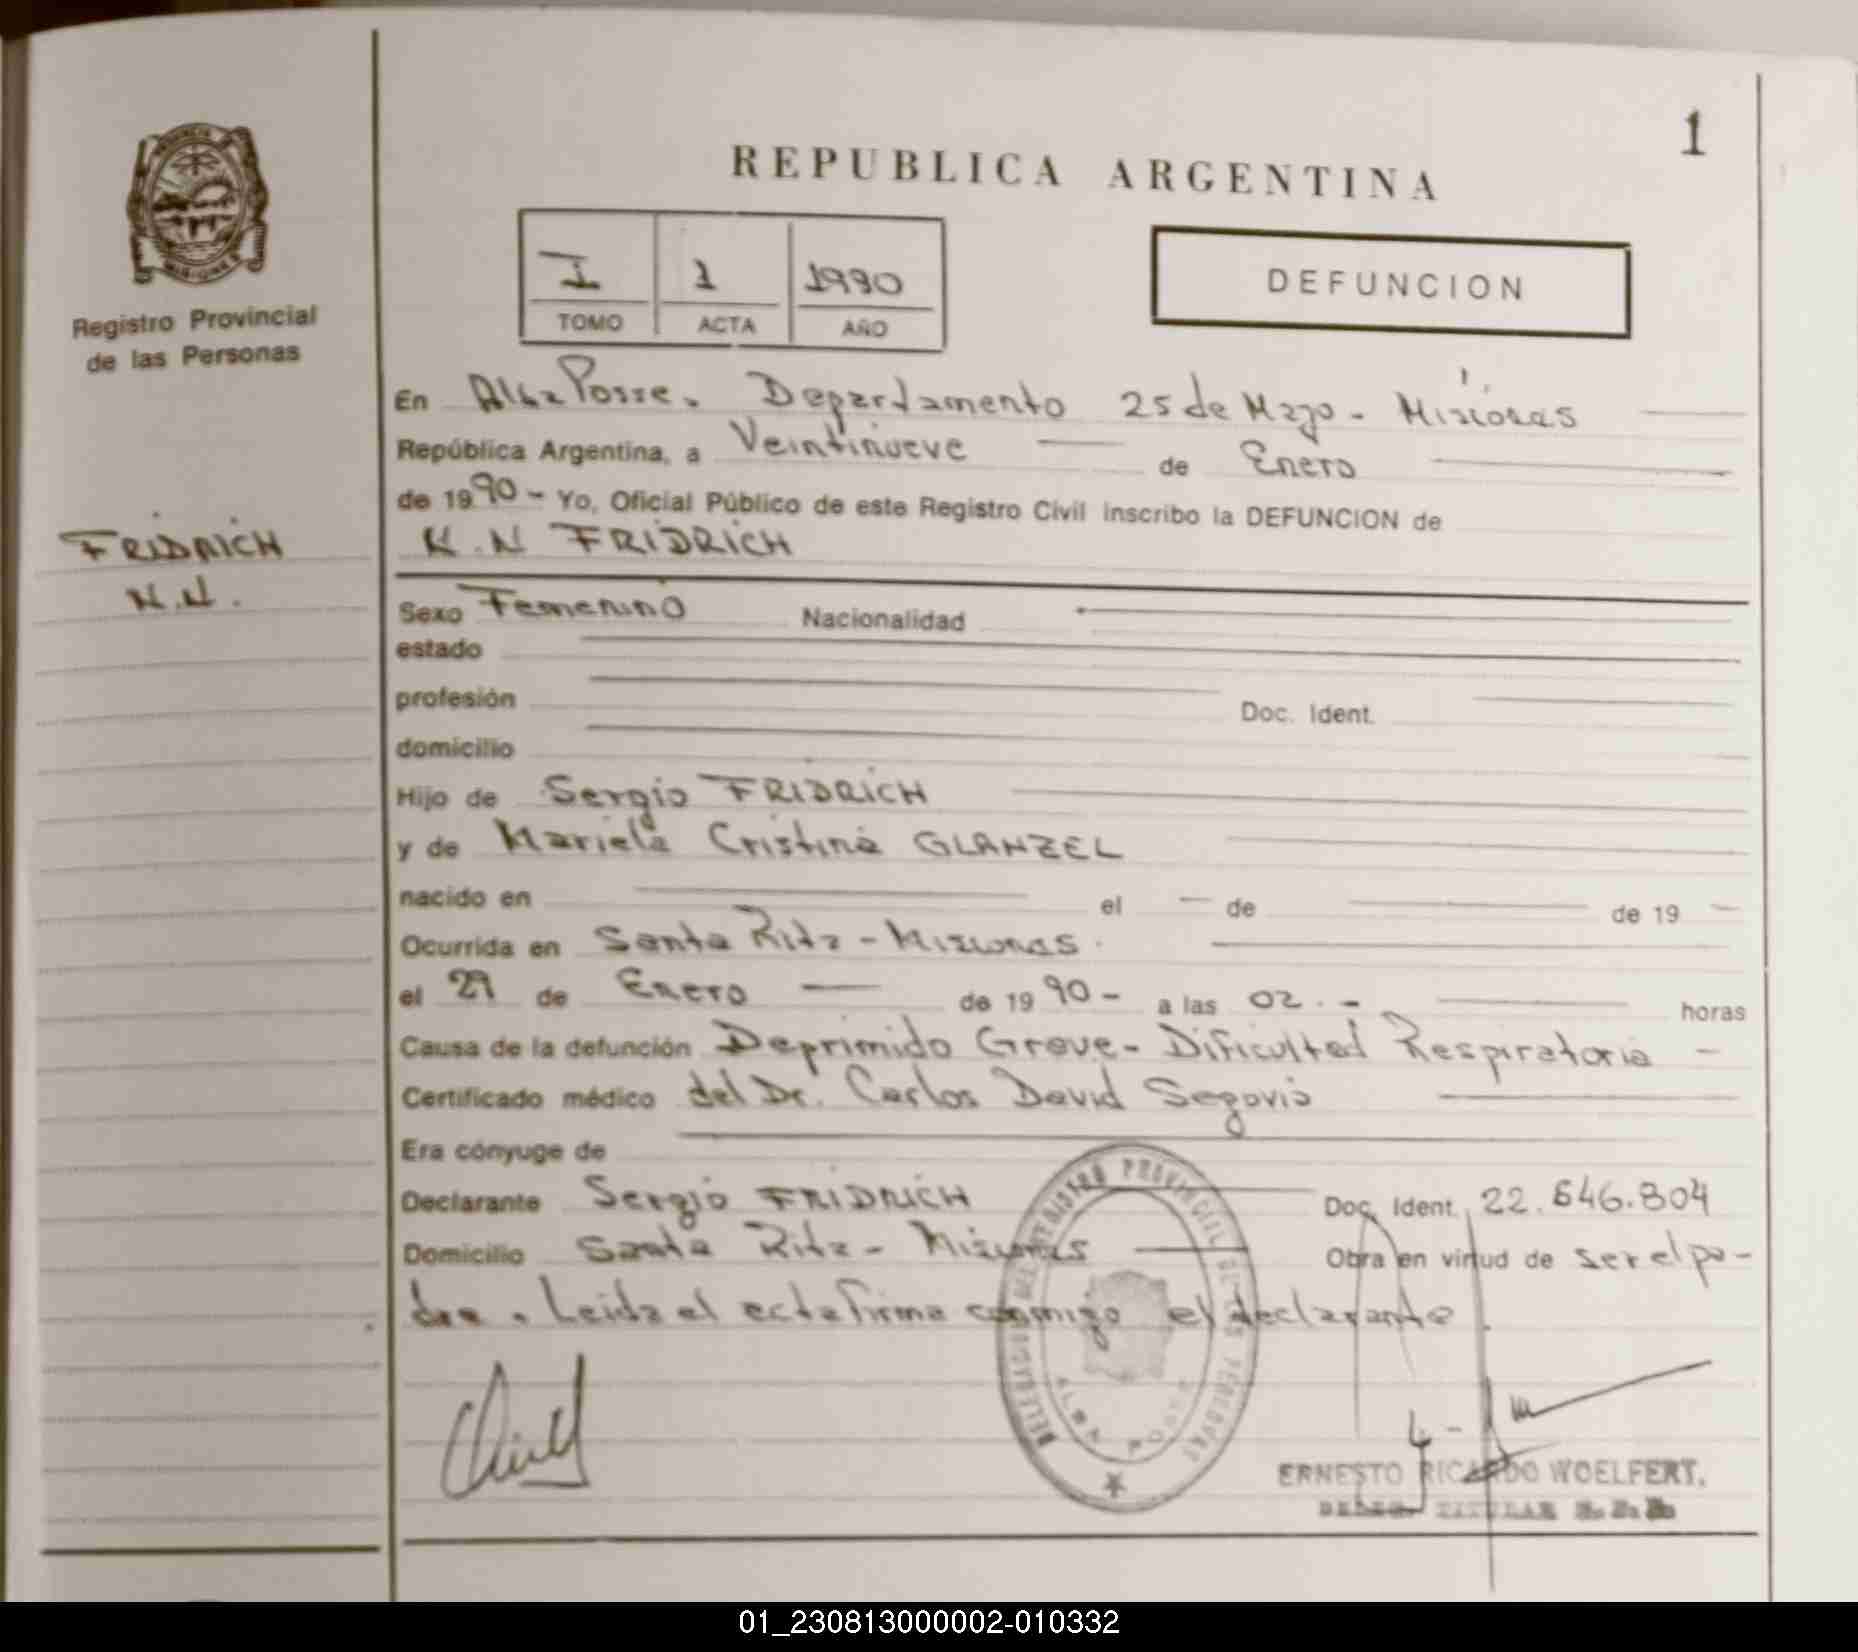 1
REPUBLICA ARGENTINA
I 1 1990
TOMO ACTA AÑO
DEFUNCION
MISIONES
Registro Provincial
de las Personas
FRIDRICH
N.N.
En Alba Posse. Departamento 25 de Mayo - Misiones
República Argentina, a Veintinueve de Enero
de 1990 - Yo, Oficial Público de este Registro Civil inscribo la DEFUNCION de
N.N FRIDRICH
Sexo Femenino Nacionalidad
estado
profesión Doc. Ident.
domicilio
Hijo de Sergio FRIDRICH
y de Mariela Cristina GLANZEL
nacido en el de de 19
Ocurrida en Santa Rita - Misiones.
el de Enero de 1990 - a las 02. - horas
Causa de la defunción Deprimido Grave - Dificultad Respiratoria -
Certificado médico del Dr. Carlos David Segovia
Era cónyuge de
Declarante Sergio FRIDRICH Doc. Ident. 22.646.804
Domicilio Santa Rita - Misiones Obra en virtud de ser el pa-
dre. Leida el acta firma conmigo el declarante.
REGISTRO PROVINCIAL DE LAS PERSONAS
ALBA POSSE
ERNESTO RICARDO WOELFERT.
TITULAR
01_230813000002-010332